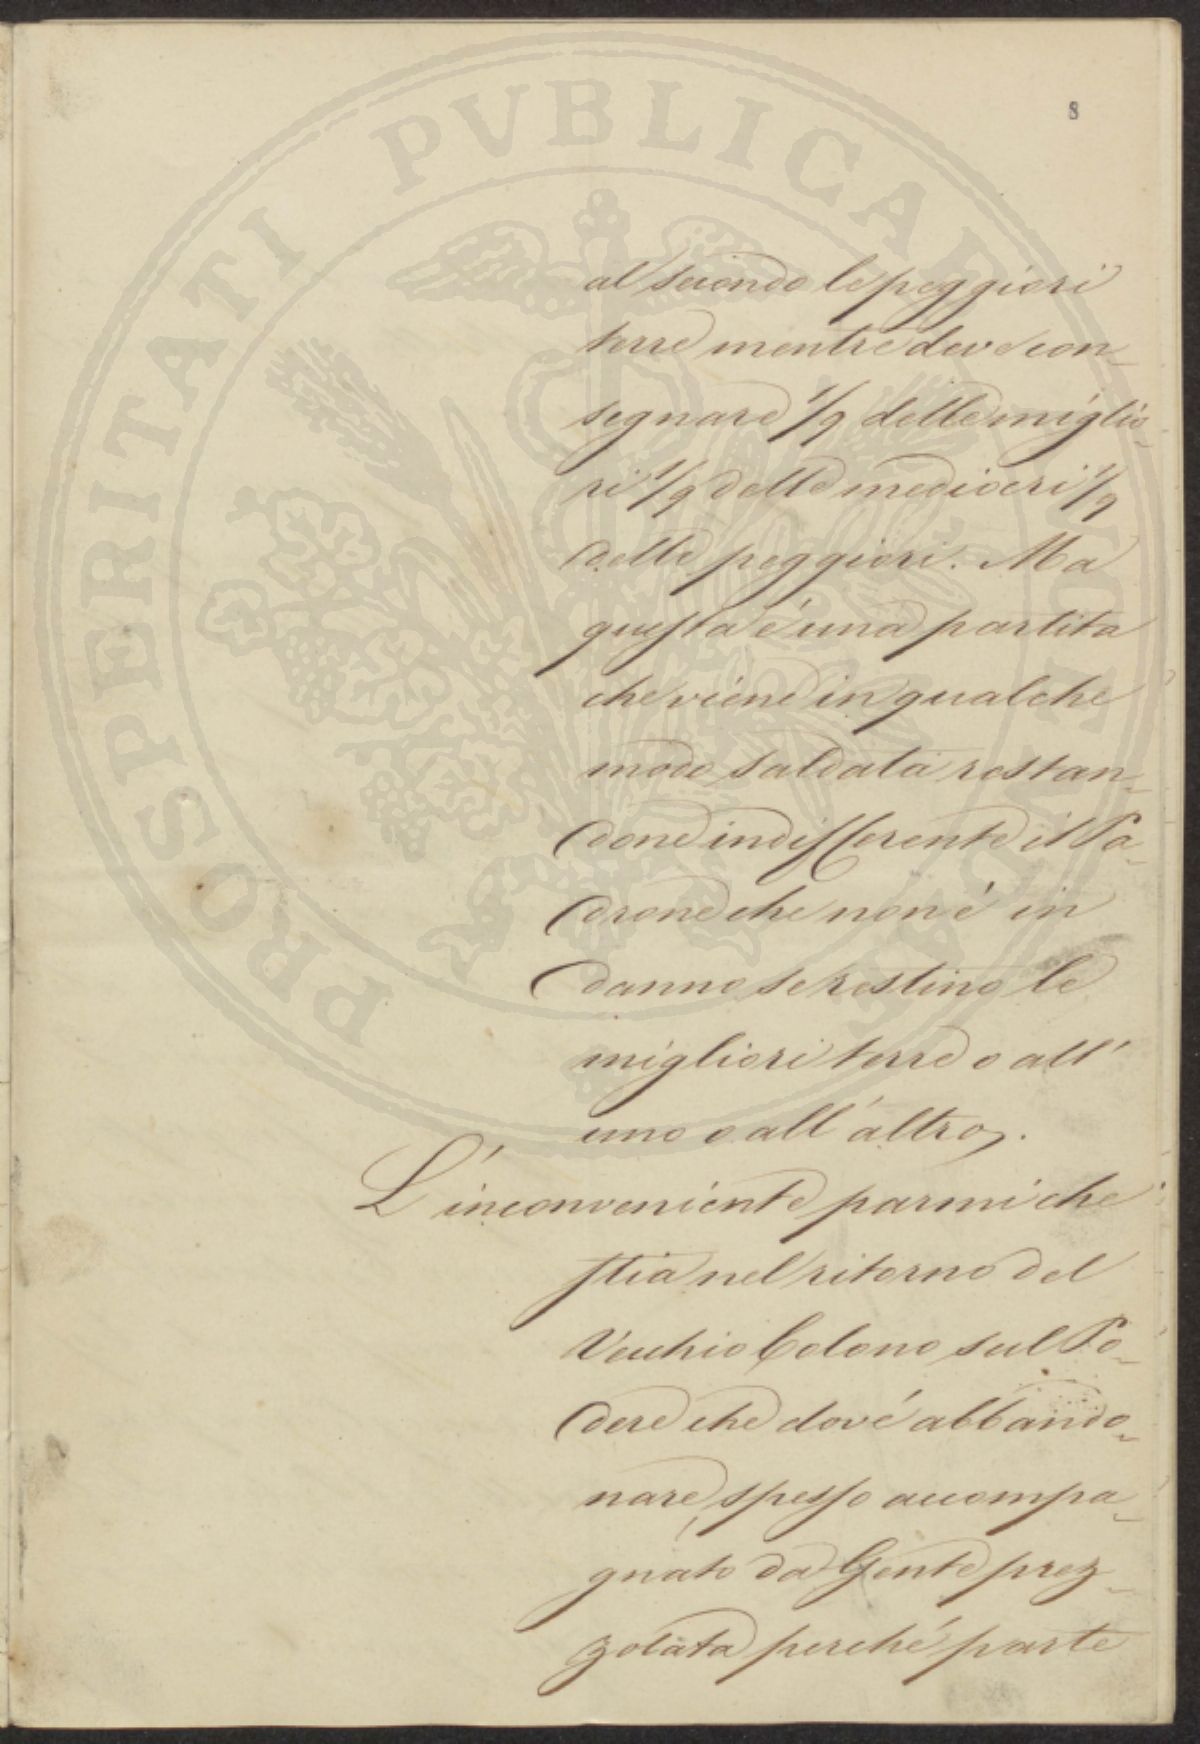 8
al secondo le peggiori
terre mentre deve con-
segnare 1/9 delle miglio-
ri 1/9 delle mediocri 1/9
delle peggiori. Ma
questa é una partita
che viene in qualche
modo saldata restan-
done indifferente il Pa-
drone che non é in
danno se restino le
migliori terre o all'
uno o all'altro.
L'inconveniente parmi che
stia nel ritorno del
Vecchio Colono sul Po-
dere che dové abbando-
nare, spesso accompa-
gnato da Gente prez-
zolata perché parte
PROSPERITATI PVBLICAE